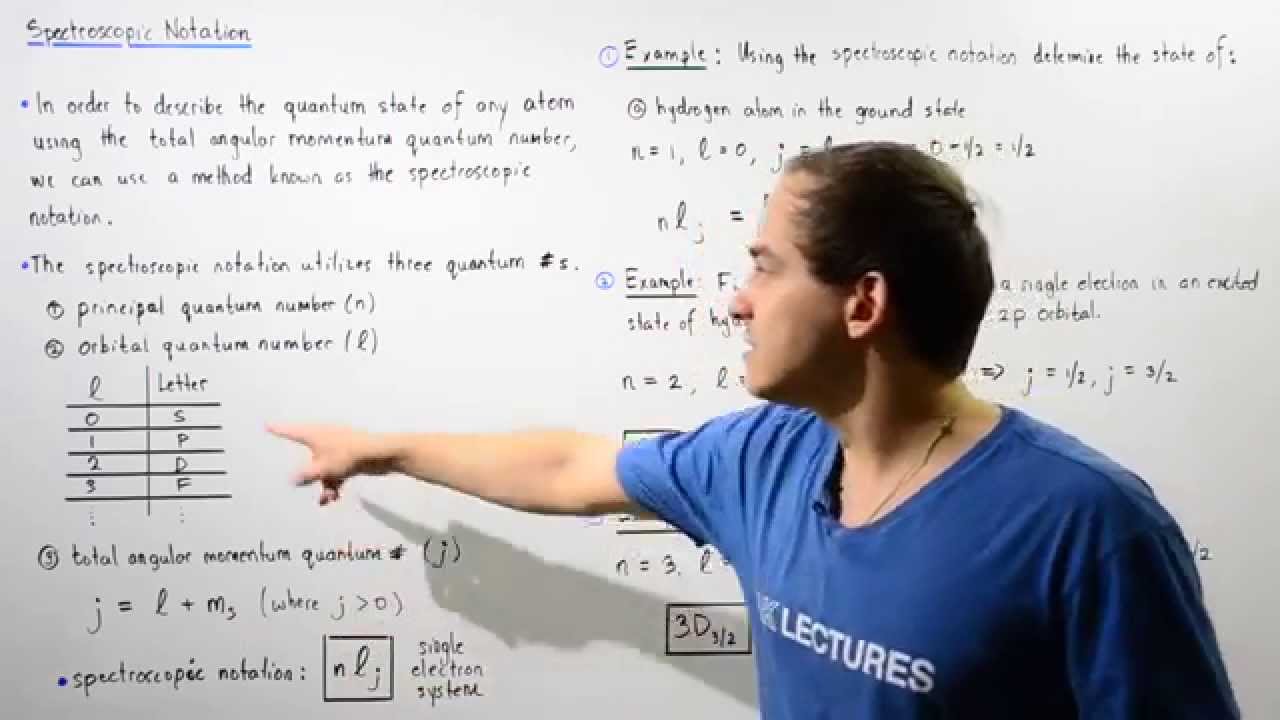 Spectroscopic Notation
• In order to describe the quantum state of any atom
using the total angular momentum quantum number,
we can use a method known as the spectroscopic
notation.
• The spectroscopic notation utilizes three quantum #s.
① principal quantum number (n)
② orbital quantum number (l)
l Letter
0 S
1 P
2 D
3 F
⋮ ⋮
③ total angular momentum quantum # (j)
j = l + ms (where j > 0)
• spectroscopic notation: nlj
single
electron
system
① Example: Using the spectroscopic notation determine the state of:
ⓐ hydrogen atom in the ground state
n = 1, l = 0, j = 0 + 1/2 = 1/2
nlj =
② Example: a single electron in an excited
state of 2p orbital.
n = 2, l = => j = 1/2, j = 3/2
n = 3, l = /2
3D3/2
LECTURES